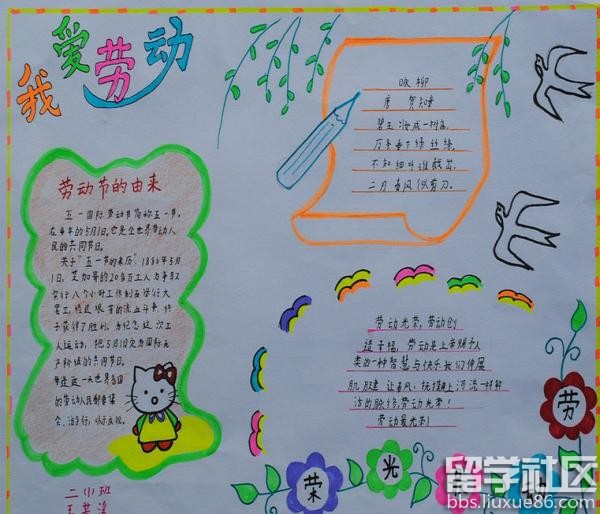 我爱劳动
咏柳
唐 贺知章
碧玉妆成一树高,
万条垂下绿丝绦,
不知细叶谁裁出,
二月春风似剪刀。
劳动节的由来
五一国际劳动节简称五一节,
在每年的5月1日,它是全世界劳动人
民的共同节日。
关于"五一节的来历:1886年5月
1日,芝加哥的20多万工人为争取
实行八个小时工作制而举行大
罢工,经过艰苦的流血斗争,终
于获得了胜利。为纪念这次工
人运动,把5月1日定为国际无
产阶级的共同节日。
每逢这一天世界各国
的劳动人民都要集
会、游行,以示庆祝。
二(1)班
劳动光荣,劳动创
造幸福,劳动是上帝赐予人
类的一种智慧与快乐我们伸展
肌腱 让春风:抚摸上河流一样鲜
活的脉络,劳动光荣!
劳动最光荣!
劳
光
荣
留学社区
bbs.liuxue86.com